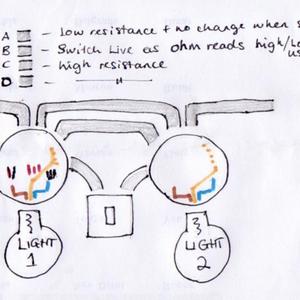 A - low resistance + no change when s
B - Switch Live as ohm reads high/
C - high resistance
D - "
LIGHT
1
LIGHT
2